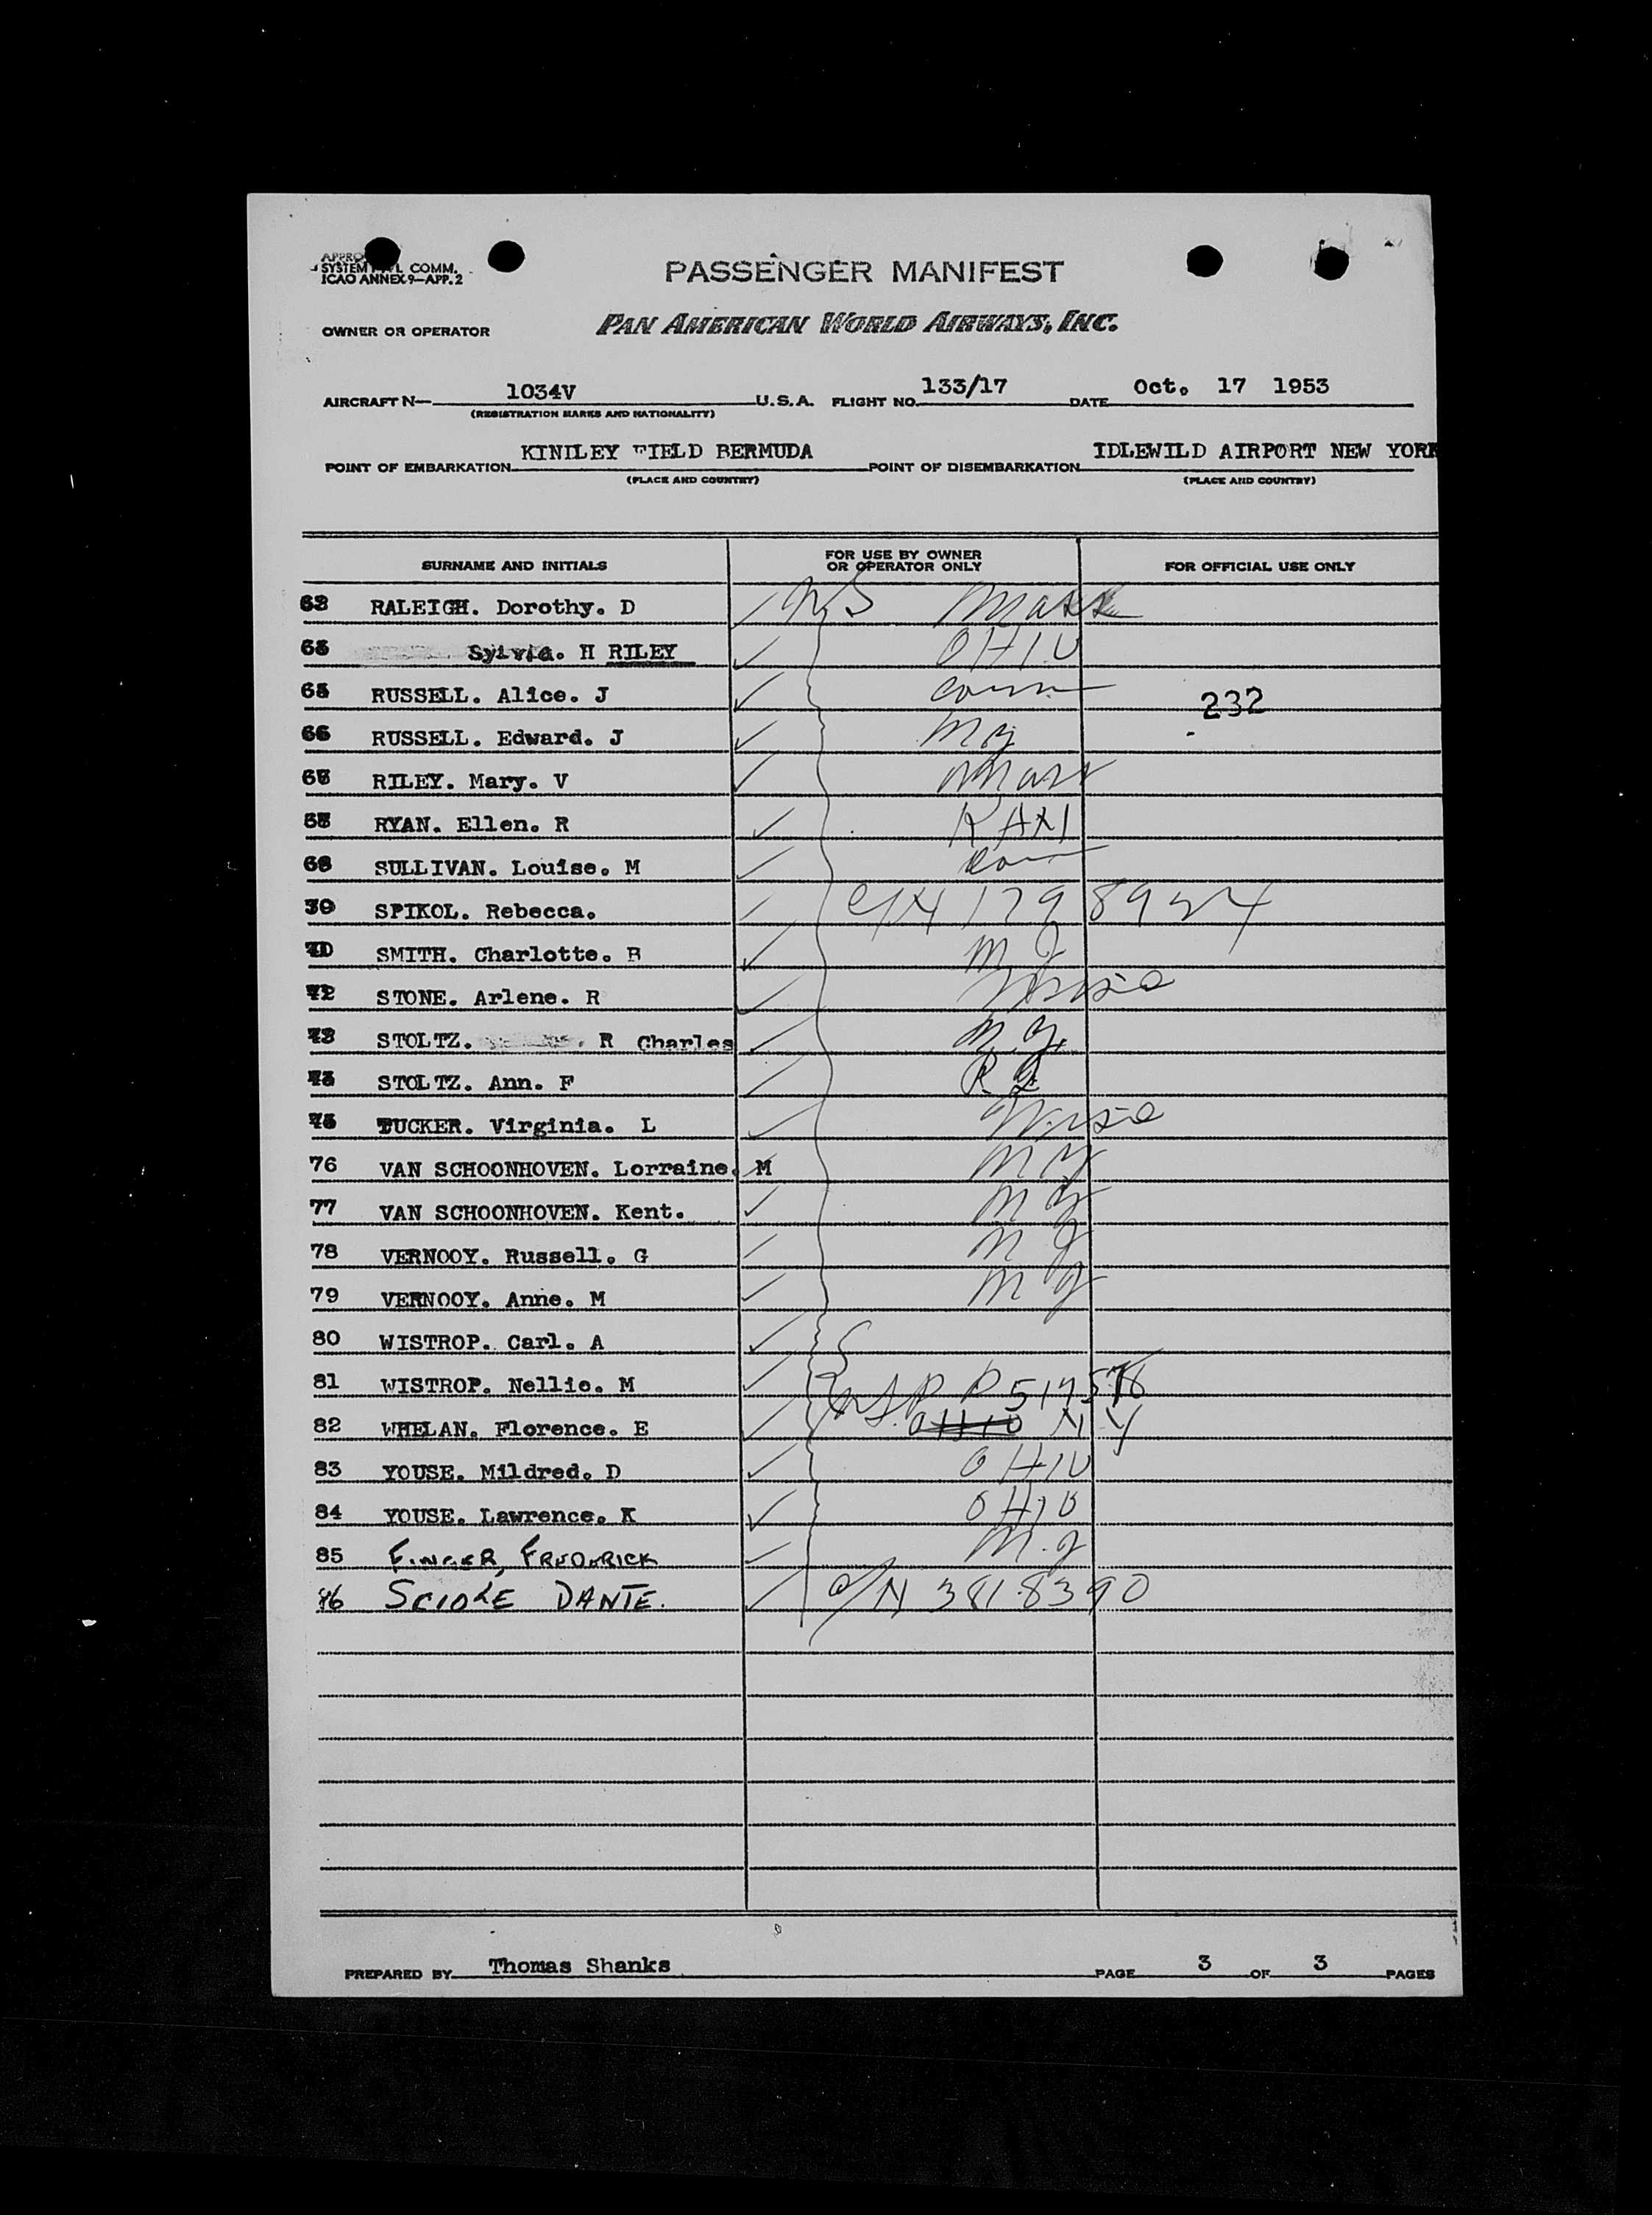 SYSTEM COMM.
ICAO ANNEX 9—APP. 2
PASSENGER MANIFEST
OWNER OR OPERATOR PAN AMERICAN WORLD AIRWAYS, INC.
AIRCRAFT N— 1034V U.S.A. FLIGHT NO. 133/17 DATE Oct. 17 1953
(REGISTRATION MARKS AND NATIONALITY)
POINT OF EMBARKATION KINILEY FIELD BERMUDA POINT OF DISEMBARKATION IDLEWILD AIRPORT NEW YORK
(PLACE AND COUNTRY) (PLACE AND COUNTRY)
SURNAME AND INITIALS FOR USE BY OWNER OR OPERATOR ONLY FOR OFFICIAL USE ONLY
RALEIGH. Dorothy. D Mass
Sylvia. H RILEY OHIO
RUSSELL. Alice. J Conn 232
RUSSELL. Edward. J
RILEY. Mary. V Mass
RYAN. Ellen. R
SULLIVAN. Louise. M Conn
SPIKOL. Rebecca.
SMITH. Charlotte. B
STONE. Arlene. R
STOLTZ. R Charles
STOLTZ. Ann. F
TUCKER. Virginia. L
76 VAN SCHOONHOVEN. Lorraine. M
77 VAN SCHOONHOVEN. Kent.
78 VERNOOY. Russell. G
79 VERNOOY. Anne. M
80 WISTROP. Carl. A
81 WISTROP. Nellie. M
82 WHELAN. Florence. E OHIO NY
83 YOUSE. Mildred. D OHIO
84 YOUSE. Lawrence. K OHIO
85 FINGER, FREDERICK
86 SCIOLE DANTE. C/N 3818390
PREPARED BY Thomas Shanks PAGE 3 OF 3 PAGES